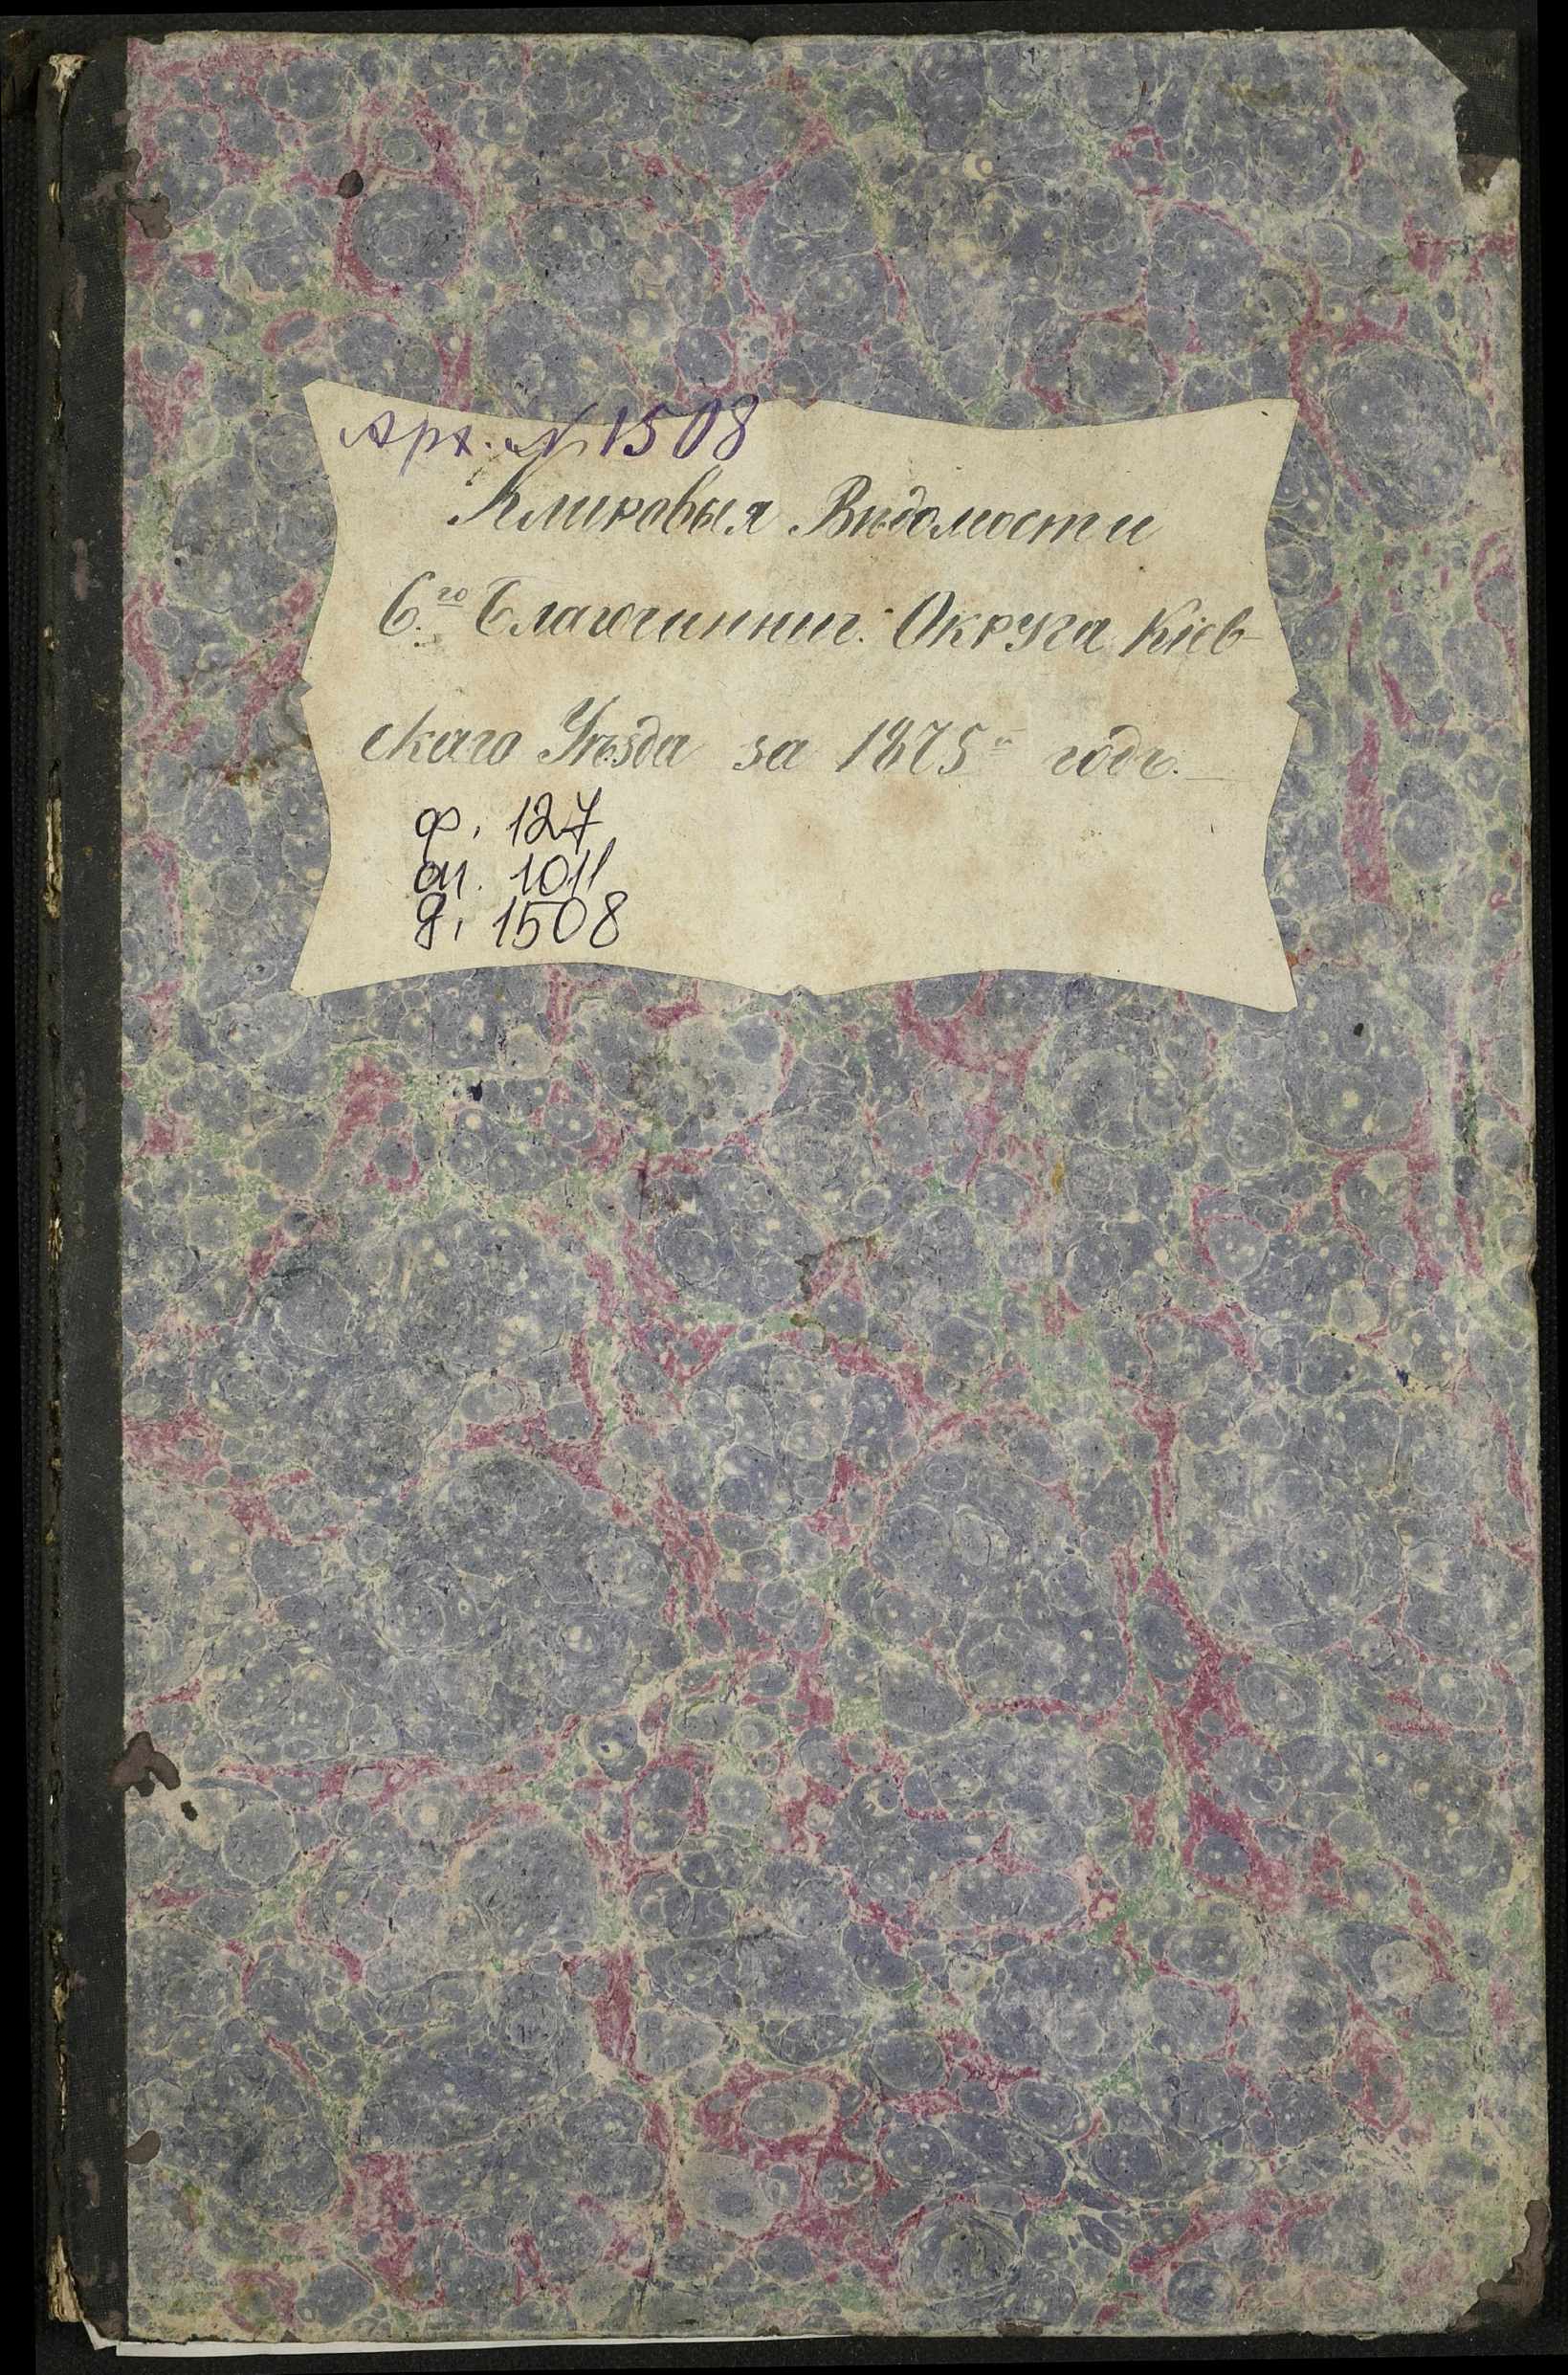 Арх. № 1508
Клировыя Вѣдомости
6.го Благочиннич. Округа Кіев-
скаго Уѣзда за 1875й годъ.
ф. 127
оп. 1011
д. 1508